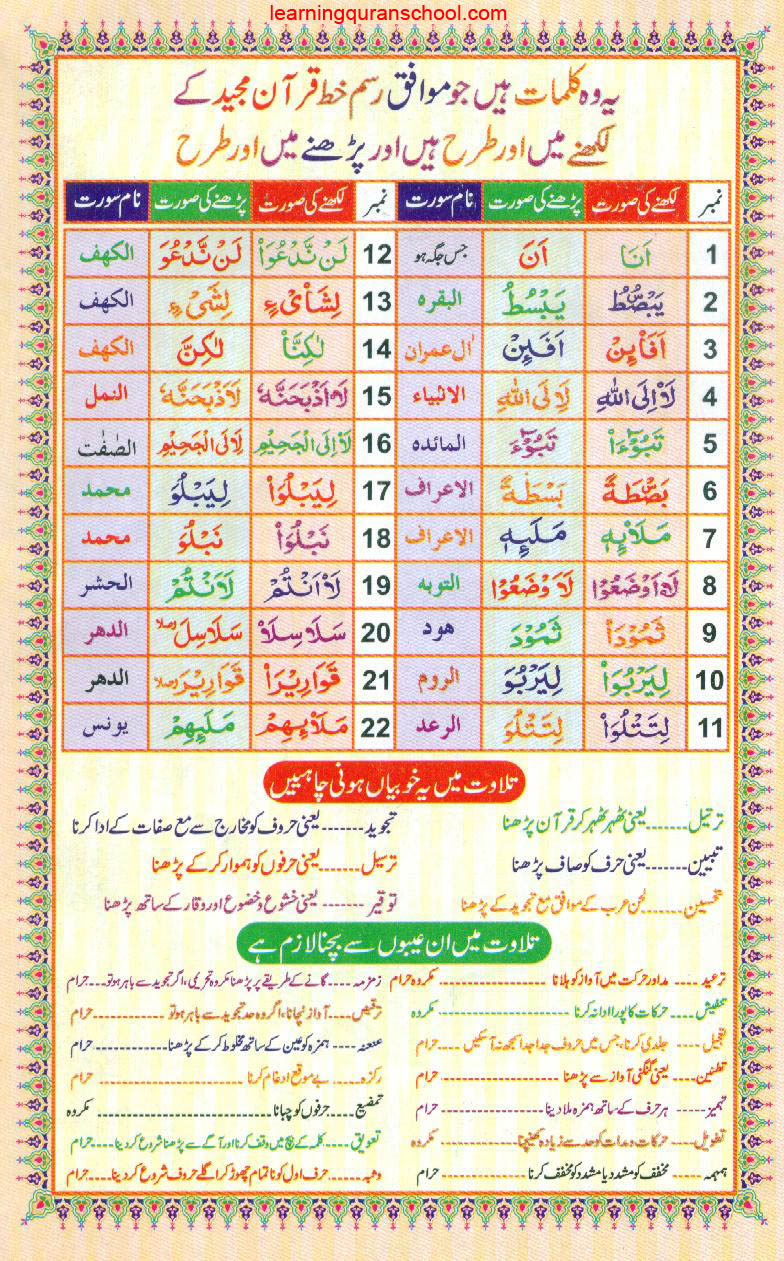 learningquranschool.com
یہ وہ کلمات ہیں جو موافق رسم خط قرآن مجید کے
لکھنے میں اور طرح ہیں اور پڑھنے میں اور طرح
نمبر لکھنے کی صورت پڑھنے کی صورت نام سورت نمبر لکھنے کی صورت پڑھنے کی صورت نام سورت
1 اَنَا اَنَ جس جگہ ہو 12 لَنْ نَّدْعُوَاْ لَنْ نَّدْعُوَ الکهف
2 یَبْصُۜطُ یَبْسُطُ البقره 13 لِشَاْیْءٍ لِشَیْءٍ الکهف
3 اَفَا۠ئِنْ اَفَئِنْ اٰل عمران 14 لٰكِنَّاْ لٰكِنَّ الکهف
4 لَاْ اِلَی اللّٰهِ لَاِلَی اللّٰهِ الانبیاء 15 لَاْاَذْبَحَنَّهٗ لَاَذْبَحَنَّهٗ النمل
5 تَبُوْٓءَاْ تَبُوْٓءَ المائده 16 لَاْ اِلَی الْجَحِیْمِ لَاِلَی الْجَحِیْمِ الصّٰفّٰت
6 بَصْۜطَةً بَسْطَةً الاعراف 17 لِیَبْلُوَاْ لِیَبْلُوَ محمد
7 مَلَا۠ئِهٖ مَلَئِهٖ الاعراف 18 نَبْلُوَاْ نَبْلُوَ محمد
8 لَاْاَوْضَعُوْا لَاَوْضَعُوْا التوبه 19 لَاْ اَنْتُمْ لَاَنْتُمْ الحشر
9 ثَمُوْدَاْ ثَمُوْدَ هود 20 سَلَاسِلَاْ سَلَاسِلَ وصلا الدهر
10 لِیَرْبُوَاْ لِیَرْبُوَ الروم 21 قَوَارِیْرَاْ قَوَارِیْرَ وصلا الدهر
11 لِتَتْلُوَاْ لِتَتْلُوَ الرعد 22 مَلَا۠ئِهِمْ مَلَئِهِمْ یونس
تلاوت میں یہ خوبیاں ہونی چاہییں
ترتیل.......یعنی ٹھہر ٹھہر کر قرآن پڑھنا تجوید.......یعنی حروف کو مخارج سے مع صفات کے ادا کرنا
تبیین.......یعنی حرف کو صاف پڑھنا ترسیل.......یعنی حرفوں کو ہموار کر کے پڑھنا
تحسین.......لحن عرب کے موافق مع تجوید کے پڑھنا توقیر.......یعنی خشوع و خضوع اور وقار کے ساتھ پڑھنا
تلاوت میں ان عیبوں سے بچنا لازم ہے
ترعید.... مد اور حرکت میں آواز کو ہلانا .......... مکروہ حرام زمزمہ.... گانے کے طریقے پر پڑھنا مکروہ تحریمی، اگر تجوید سے باہر ہو تو... حرام
تنفیش.... حرکات کا پورا ادا نہ کرنا .......... مکروہ ترقیص.... آواز نچانا، اگر وہ حد تجوید سے باہر ہو تو .......... حرام
تعجیل.... جلدی کرنا، جس میں حروف جدا جدا سمجھ نہ آسکیں .... حرام عنعنہ.... ہمزہ کو عین کے ساتھ مخلوط کر کے پڑھنا .......... حرام
تطنین.... یعنی گنگنی آواز سے پڑھنا .......... حرام رکزہ.... بے موقع ادغام کرنا .......... حرام
تہمیز.... ہر حرف کے ساتھ ہمزہ ملا دینا .......... حرام تمضیغ.... حرفوں کو چبانا .......... مکروہ
تطویل.... حرکات و مدات کو حد سے زیادہ کھینچنا .......... مکروہ تعویق.... کلمہ کے بیچ میں وقف کرنا اور آگے سے پڑھنا شروع کر دینا.... حرام
ہمہمہ.... مخفف کو مشدد یا مشدد کو مخفف کرنا .......... حرام وثبہ...... حرف اول کو ناتمام چھوڑ کر اگلے حروف شروع کر دینا.... حرام